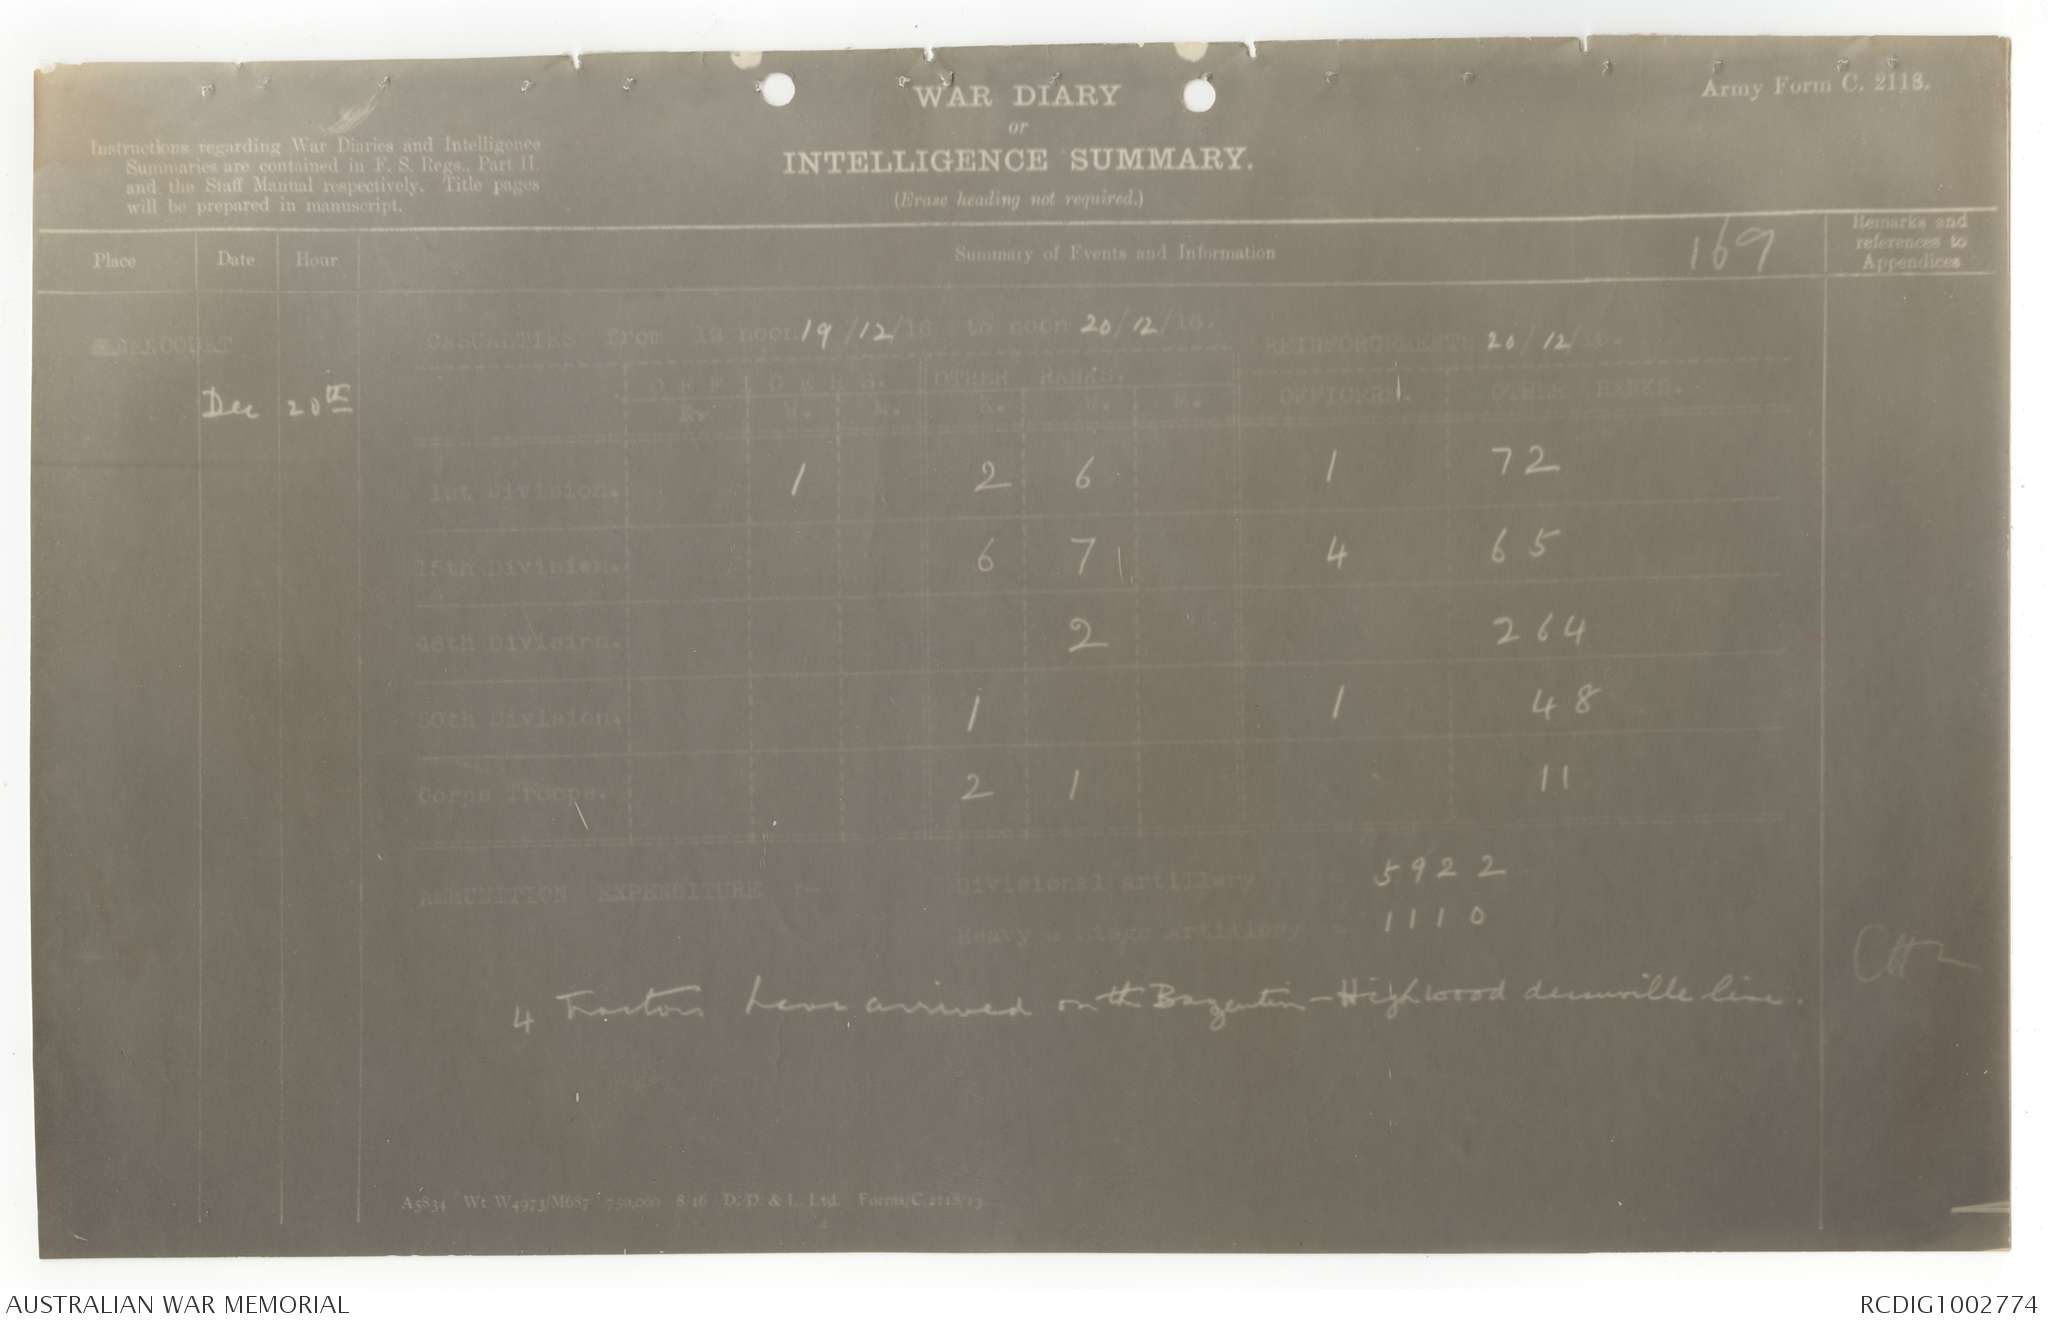 WAR DIARY
or
INTELLIGENCE SUMMARY.
(Erase heading not required.)
Army Form C. 2118.
Instructions regarding War Diaries and Intelligence
Summaries are contained in F. S. Regs., Part II.
and the Staff Manual respectively. Title pages
will be prepared in manuscript.
Place Date Hour Summary of Events and Information 169 Remarks and references to Appendices
CASUALTIES from 12 noon 19/12/16 to noon 20/12/16. REINFORCEMENTS 20/12/16.
Dec 20th
OFFICERS. OTHER RANKS. OFFICERS. OTHER RANKS.
K. W. M. K. W. M.
1st Division. 1 2 6 1 72
15th Division. 6 7 4 65
48th Division. 2 264
50th Division. 1 1 48
Corps Troops. 2 1 11
AMMUNITION EXPENDITURE :- Divisional Artillery 5922
Heavy & Siege Artillery - 1110
4 Tractors have arrived on the Bazentin - Highwood decauville line.
A5834 Wt W4973/M687 750,000 8/16 D. D. & L. Ltd. Forms/C.2118/13
AUSTRALIAN WAR MEMORIAL
RCDIG1002774